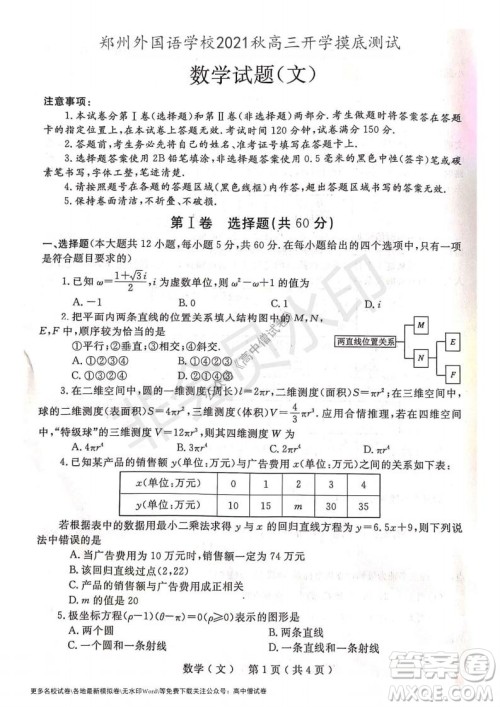 郑州外国语学校2021秋高三开学摸底测试
数学试题(文)
注意事项:
1.本试卷分第Ⅰ卷(选择题)和第Ⅱ卷(非选择题)两部分.考生作答时将答案答在答题
卡的指定位置上,在本试卷上答题无效.考试时间120分钟,试卷满分150分.
2.答题前,考生务必先将自己的姓名、准考证号填写在答题卡上.
3.选择题答案使用2B铅笔填涂,非选择题答案使用0.5毫米的黑色中性(签字)笔或碳
素笔书写,字体工整,笔迹清楚.
4.请按照题号在答题卡的各题的答题区域(黑色线框)内作答,超出答题区域书写的答案无效.
5.保持卷面清洁,不折叠、不破损.
第Ⅰ卷 选择题(共60分)
一、选择题(本大题共12小题,每小题5分,共60分.在每小题给出的四个选项中,只有一项
是符合题目要求的)
1.已知ω=(1+√3i)/2,i为虚数单位,则ω²-ω+1的值为
A.-1 B.0 C.1 D.i
2.把平面内两条直线的位置关系填人结构图中的M,N,
E,F中,顺序较为恰当的是
①平行;②垂直;③相交;④斜交.
A.①②③④ B.①④②③
C.①③②④ D.②①④③
两直线位置关系 M N E F
3.在二维空间中,圆的一维测度(周长)l=2πr,二维测度(面积)S=πr²;在三维空间中,
球的二维测度(表面积)S=4πr²,三维测度(体积)V=4/3πr³.应用合情推理,若在四维空间
中,“特级球”的三维测度V=12πr³,则其四维测度W为
A.4πr⁴ B.3πr⁴ C.2πr⁴ D.πr⁴
4.已知某产品的销售额y(单位:万元)与广告费用x(单位:万元)之间的关系如下表:
x(单位:万元) 0 1 2 3 4
y(单位:万元) 10 15 m 30 35
若根据表中的数据用最小二乘法求得y对x的回归直线方程为y=6.5x+9,则下列说
法中错误的是
A.当广告费用为10万元时,销售额一定为74万元
B.该回归直线过点(2,22)
C.产品的销售额与广告费用成正相关
D.m的值是20
5.极坐标方程(ρ-1)(θ-π)=0(ρ⩾0)表示的图形是
A.两个圆 B.两条直线
C.一个圆和一条射线 D.一条直线和一条射线
数学(文) 第1页(共4页)
更多名校试卷\各地最新模拟卷\无水印Word\等免费下载关注公众号:高中僧试卷